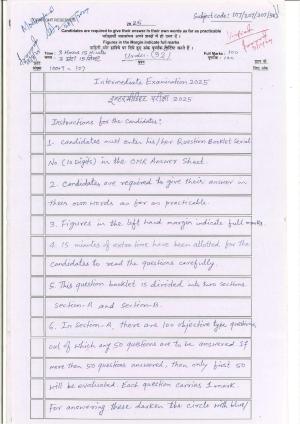 Subject code:
2025
Candidates are required to give their answer in their own words as far as practicable
Figures in the Margin indicate full marks
Time : 3 Hours 15 minute
Under - (32)
Full Marks : 100
Intermediate Examination 2025
इन्टरमीडिएट परीक्षा 2025
Instructions for the Candidates :
1. Candidates must enter his/her Question Booklet Serial
No (10 Digits) in the OMR Answer Sheet.
2. Candidates are required to give their answer in
their own words as far as practicable.
3. Figures in the left hand margin indicate full marks
4. 15 minutes of extra time have been allotted for the
candidates to read the questions carefully.
5. This question booklet is divided into two sections
Section-A and Section-B.
6. In Section-A, there are 100 objective type questions,
out of which any 50 questions are to be answered. If
more than 50 questions answered, then only first 50
will be evaluated. Each question carries 1 mark.
For answering these darken the circle with blue/